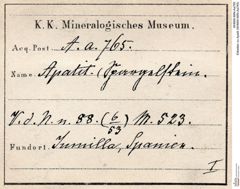 K. K. Mineralogisches Museum.
Acq. Post. A. a. 765.
Name: Apatit. (Spargelstein.
V. d. N. n. 88. (6/53) M. 523.
Fundort: Jumilla, Spanien.
I